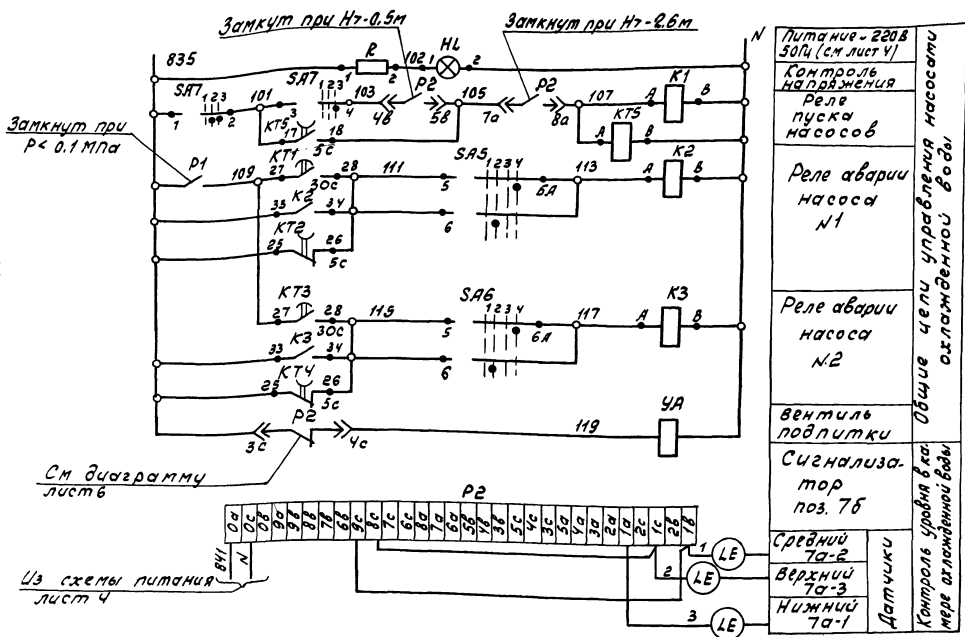 Замкнут при H>-0,5м
Замкнут при H>-2,6м
N
835
R
1
2
102
1
HL
2
SA7
1 2 3
1
2
101
SA7
1 2 3
3
4
103
4в
P2
5в
105
7а
P2
8а
107
A
K1
B
KT5
17
18
5с
A
KT5
B
Замкнут при
P< 0.1 МПа
P1
109
KT1
27
28
30с
111
SA5
1 2 3 4
5
6А
113
A
K2
B
K2
33
34
6
KT2
25
26
5с
KT3
27
28
30с
115
SA6
1 2 3 4
5
6А
117
A
K3
B
K3
33
34
6
KT4
25
26
5с
P2
3с
4с
119
УА
См диаграмму
лист 6
P2
0а 0с 0в 9а 9в 8в 7в 6в 9с 8с 7с 6с 8а 7а 6а 5в 4в 3в 5с 4с 3с 5а 4а 3а 2а 1а 2с 1с 2в 1в
841
N
Из схемы питания
лист 4
1
LE
2
LE
3
LE
Питание ~ 220В
50Гц (см лист 4)
Контроль
напряжения
Реле
пуска
насосов
Реле аварии
насоса
N1
Реле аварии
насоса
N2
Вентиль
подпитки
Сигнализа-
тор
поз. 7б
Средний
7а-2
Верхний
7а-3
Нижний
7а-1
Датчики
Общие цепи управления насосами
охлажденной воды
Контроль уровня в ка-
мере охлажденной воды